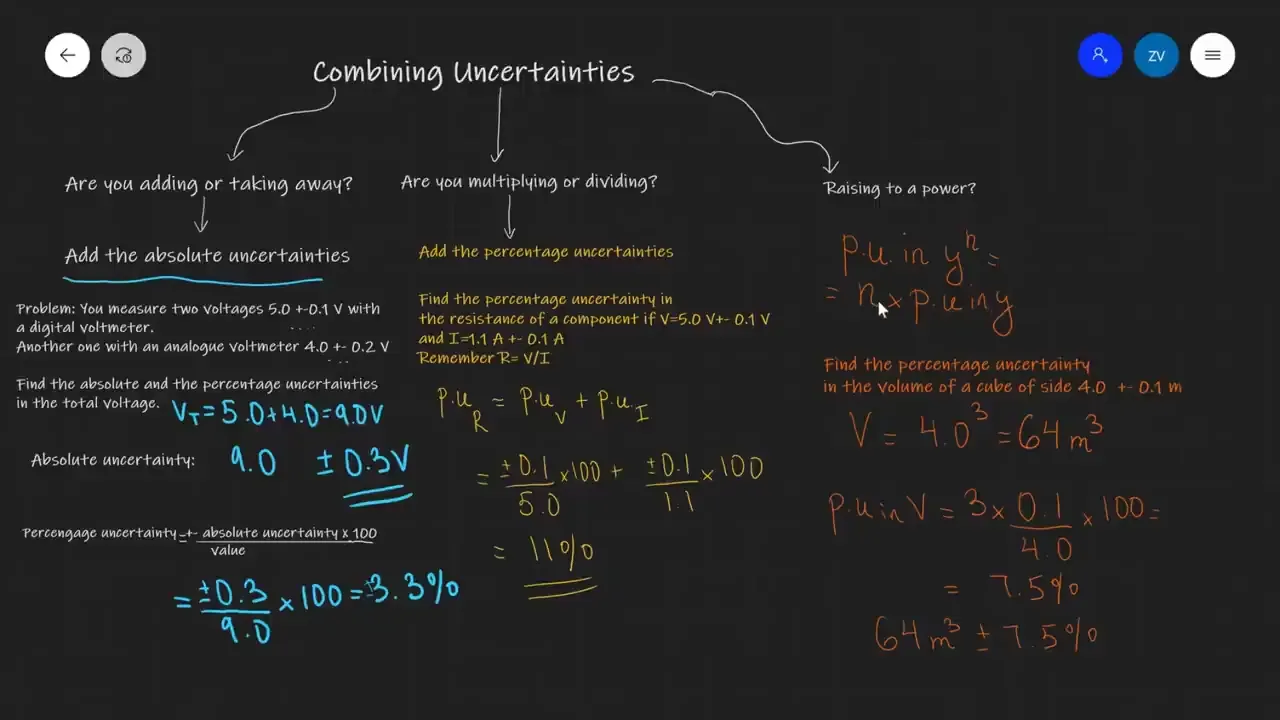 ZV
Combining Uncertainties
Are you adding or taking away?
Add the absolute uncertainties
Problem: You measure two voltages 5.0 +-0.1 V with
a digital voltmeter.
Another one with an analogue voltmeter 4.0 +- 0.2 V
Find the absolute and the percentage uncertainties
in the total voltage.
V_T = 5.0+4.0=9.0V
Absolute uncertainty: 9.0 ± 0.3V
Percengage uncertainty =+- absolute uncertainty x 100
value
= ±0.3 × 100 = ±3.3%
9.0
Are you multiplying or dividing?
Add the percentage uncertainties
Find the percentage uncertainty in
the resistance of a component if V=5.0 V+- 0.1 V
and I=1.1 A +- 0.1 A
Remember R= V/I
p.u._R = p.u._V + p.u._I
= ±0.1 ×100 + ±0.1 × 100
5.0 1.1
= 11%
Raising to a power?
p.u. in yⁿ =
= n × p.u in y
Find the percentage uncertainty
in the volume of a cube of side 4.0 +- 0.1 m
V = 4.0³ = 64m³
p.u in V = 3 × 0.1 × 100 =
4.0
= 7.5%
64m³ ± 7.5%